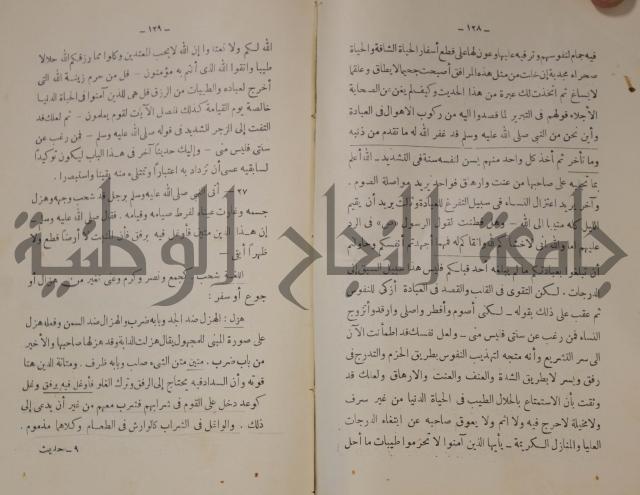 — ١٢٨ —
فيه جمام لنفوسهم وترفيه عليها وعون لها على قطع أسفار الحياة الشاقة والحياة
صحراء مجدبة إن خلت من مثل هذه المرافق أصبحت جحيما لا يطاق وعلقما
لا يساغ ثم اتخذت لك عبرة من هذا الحديث وكيف لم يغن عن الصحابة
الأجلاء قولهم فى التبرير لما قصدوا اليه من ركوب الأهوال فى العبادة
وأين نحن من النبى صلى الله عليه وسلم قد غفر الله له ما تقدم من ذنبه
وما تأخر ثم أخذ كل واحد منهم يسن لنفسه سنة فى التشديد ـ الله أعلم
بما تجنيه على صاحبها من عنت وارهاق فواحد يريد مواصلة الصوم .
وآخر يريد اعتزال النساء فى سبيل التفرغ للعبادة وثالث يريد أن يقيم
الليل كله متبتلا الى الله ـ وهل فطنت لقول الرسول فى الرد
عليهم أما والله إنى لأخشاكم لله وأتقاكم له فهما أجهدتم أنفسكم وحاولتم
أن تبلغوا بعبادتكم ما لم يبلغه أحد قبلكم فليس هذا سبيل السبق إلى
الدرجات . لكن التقوى فى القلب والقصد فى العبادة أزكى للنفوس
ثم عقب على ذلك بقوله ـ لكنى أصوم وأفطر وأصلى وارقد وأتزوج
النساء فمن رغب عن سنتى فليس منى ـ ولعل نفسك قد اطمأنت الآن
الى سر التشريع وأنه متجه لتهذيب النفوس بطريق الحزم والتدرج فى
رفق ويسر لا بطريق الشدة والعنف والعنت والارهاق ولعلك قد
وثقت بأن الاستمتاع بالحلال الطيب فى الحياة الدنيا من غير سرف
ولا مخيلة لا حرج فيه ولا اثم ولا يعوق صاحبه عن ابتغاء الدرجات
العليا والمنازل الكريمة ـ يأيها الذين آمنوا لا تحرموا طيبات ما أحل
— ١٢٩ —
الله لكم ولا تعتدوا إن الله لا يحب المعتدين وكلوا مما رزقكم الله حلالا
طيبا واتقوا الله الذى أنتم به مؤمنون ـ قل من حرم زينة الله التى
أخرج لعباده والطيبات من الرزق قل هى للذين آمنوا فى الحياة الدنيا
خالصة يوم القيامة كذلك نفصل الآيات لقوم يعلمون ـ ثم لعلك قد
التفت إلى الزجر الشديد فى قوله صلى الله عليه وسلم ـ فمن رغب عن
سنتى فليس منى ـ واليك حديثا آخر فى هذا الباب ليكون توكيدا
لسابقيه عسى أن تزداد به اعتبارا وتمتلىء منه يقينا واستبصارا .
٢٧ ـ أتى النبى صلى الله عليه وسلم برجل قد شحب وجهه وهزل
جسمه وغارت عيناه لفرط صيامه وقيامه . فقال صلى الله عليه وسلم
إن هذا الدين متين فأوغل فيه برفق فإن المنبت لا أرضا قطع ولا
ظهرا أبقى ـ
اللغة شحب كجمع ونصر وكرم وعنى تغير من هزال أو
جوع أو سفر :
هزل : الهزل ضد الجد وبابه ضرب والهزال ضد السمن وفعله هزل
على صورة المبنى للمجهول يقال هزلت الدابة وقد هزلها صاحبها والأخير
من باب ضرب . متين متن الشىء صلب وبابه ظرف . ومتانة الدين هنا
قوته وأن السداد فيه يحتاج إلى الرفق وترك الغلو فأوغل فيه برفق وغل
كوعد دخل على القوم فى شرابهم فشرب معهم من غير أن يدعى إلى
ذلك . والواغل فى الشراب كالوارش فى الطعام وكلاهما مذموم .
٩ ـ حديث
جامعة النجاح الوطنية